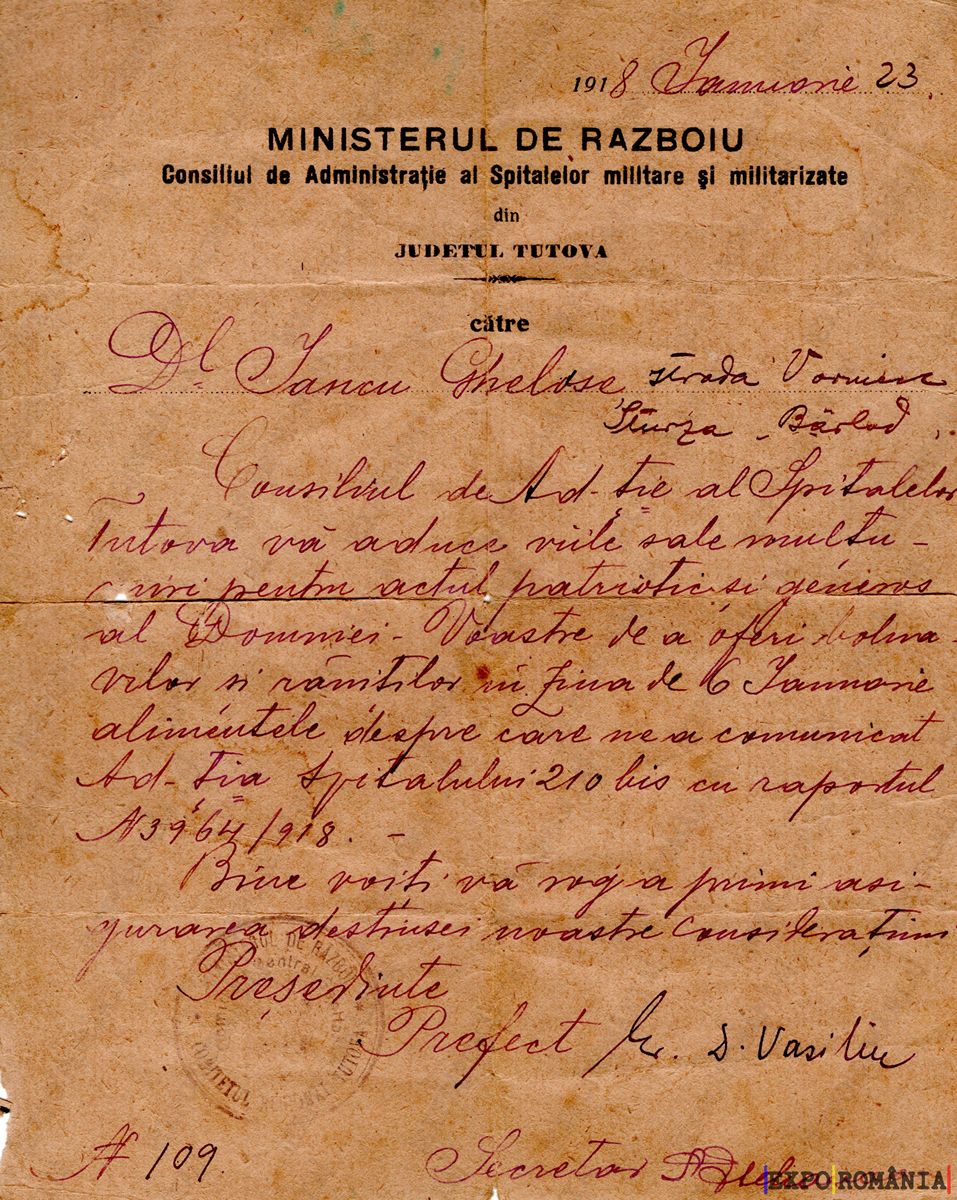 1918 Ianuarie 23.
MINISTERUL DE RAZBOIU
Consiliul de Administrație al Spitalelor militare și militarizate
din
JUDETUL TUTOVA
către
Dl. Iancu Ghelose strada Vornicu
Sturza, Bârlad,
Consiliul de Ad-ție al Spitalelor
Tutova vă aduce viile sale multu-
miri pentru actul patriotic si géneros
al Domniei-Voastre de a oferi bolna
vilor si răniților in ziua de 6 Ianuarie
alimentele despre care ne a comunicat
Ad-ția Spitalului 210 bis cu raportul
N 3964/918. -
Bine voiți vă rog a primi asi-
gurarea destinsei noastre Considerațiuni
Președinte
Prefect Gr. D. Vasiliu
COMITETUL TUTOVA
N 109
Secretar
EXPO ROMÂNIA